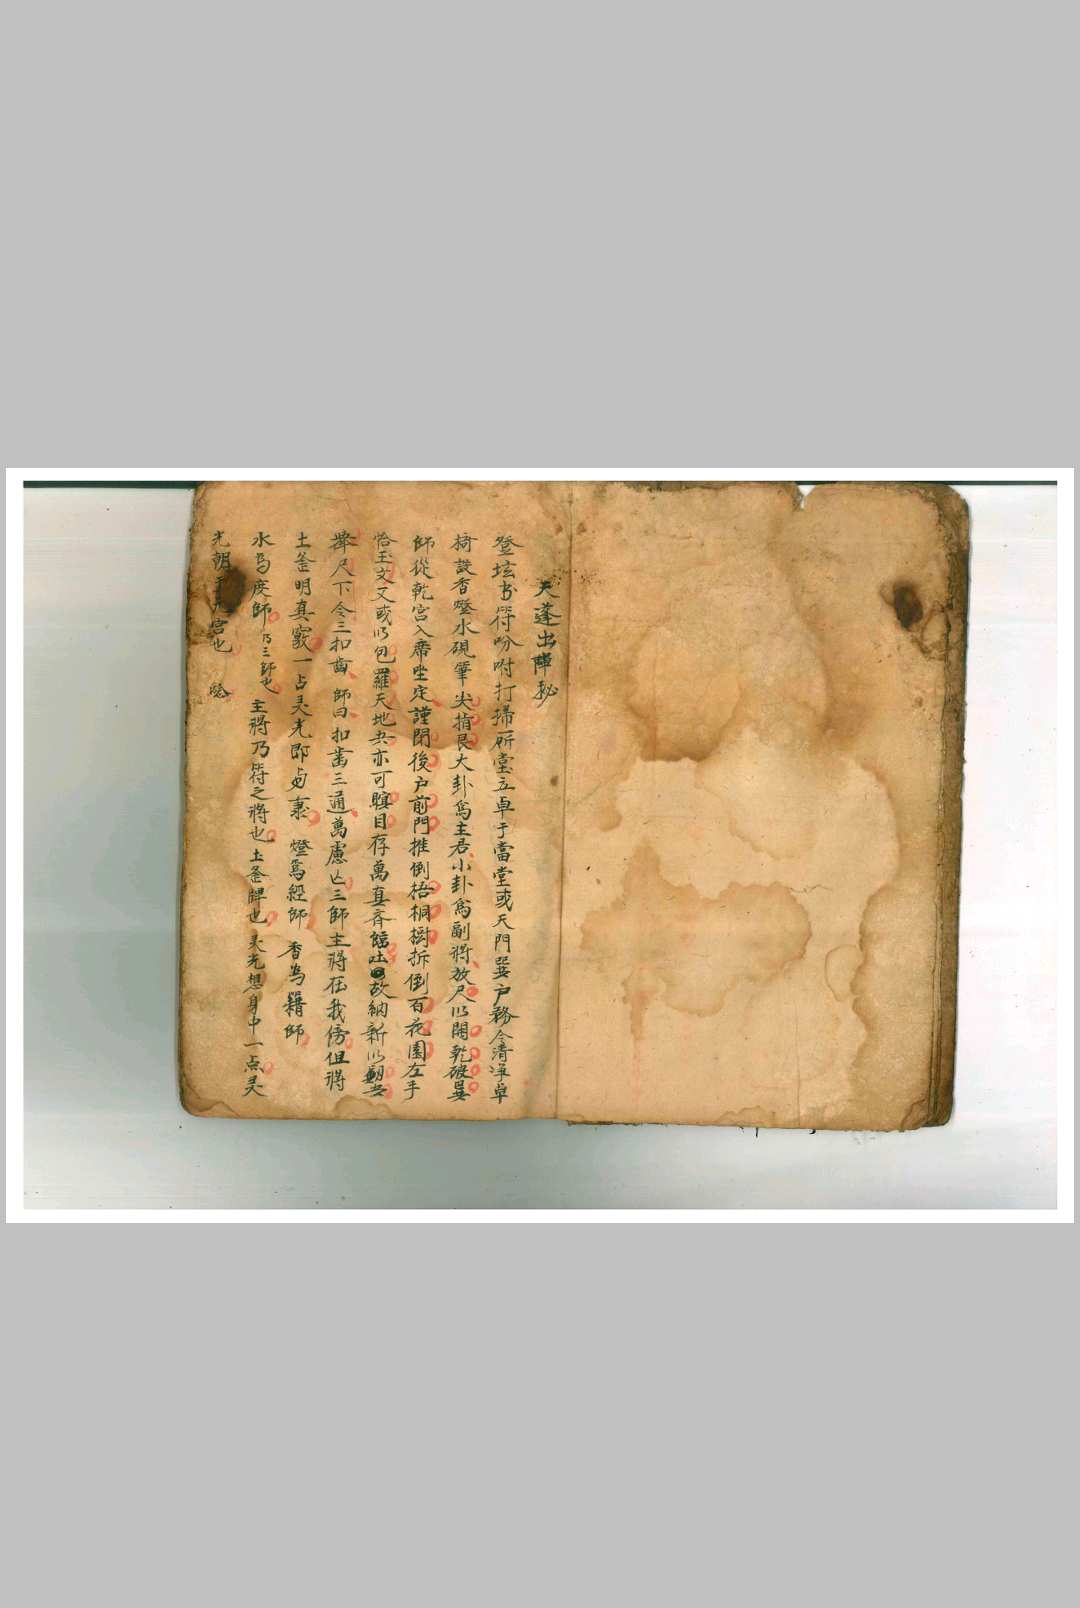 天蓬出陣秘
登坛书符吩咐打掃厛堂立卓于當堂或天門巽户務令清净卓
椅設香燈水硯筆尖指艮大卦爲主君小卦爲副將放尺以開乾破巽
師從乾宫入席坐定謹閉後户前門推倒梧桐樹拆倒百花園左手
恰玉文又或以包羅天地共亦可瞑目存萬真斉臨吐故納新以
尺下令三扣齒師曰扣齒三通萬慮亡三師主將在我傍但將
土釜明真竅一占灵光即 燈爲經師香爲籍師
水爲度師乃三師也主將乃符之將也土釜脾也灵光想身中一点灵
光朝 宫也